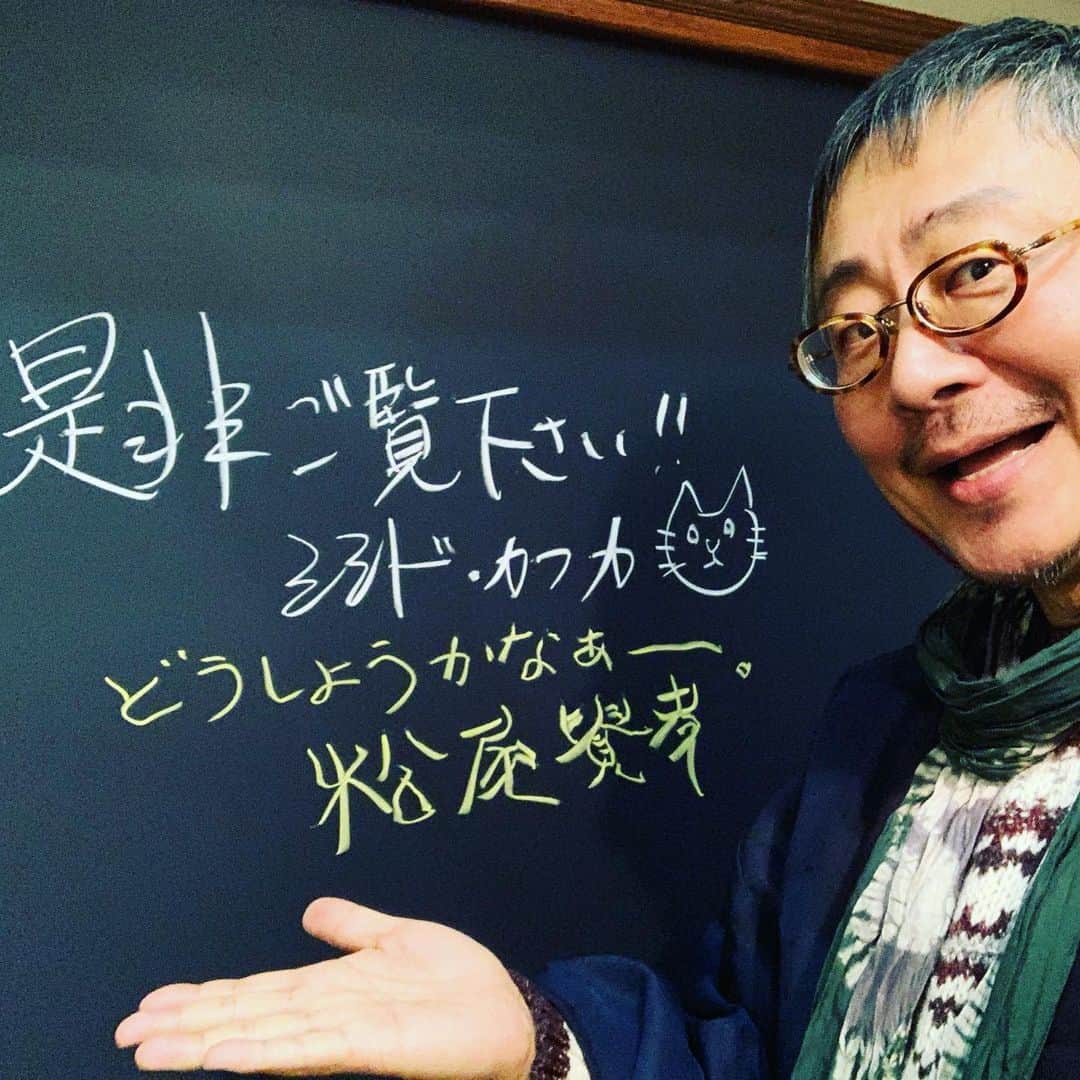 是非ご覧下さい!!
シシド・カフカ
どうしようかなぁー。
松尾貴